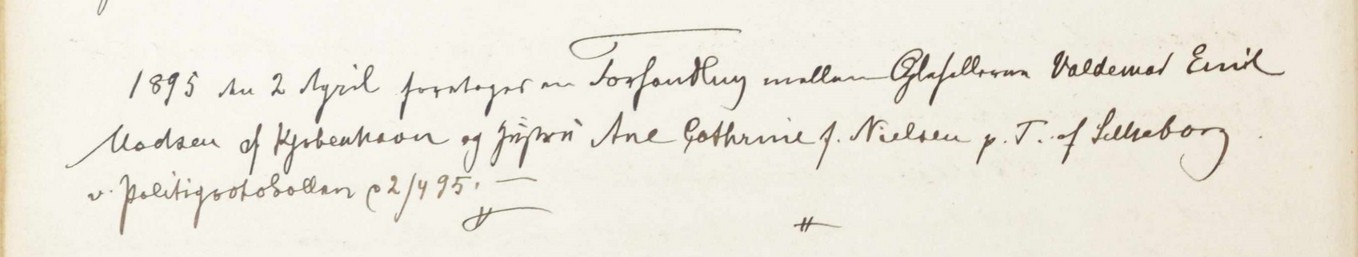 1895 den 2 April foretoges en Forhandling mellem Ægtefællerne Valdemar Emil
Madsen af Kjøbenhavn og Hustru Ane Cathrine f. Nielsen p. T. af Silkeborg.
v. Politiprotokollen 2/4 95.